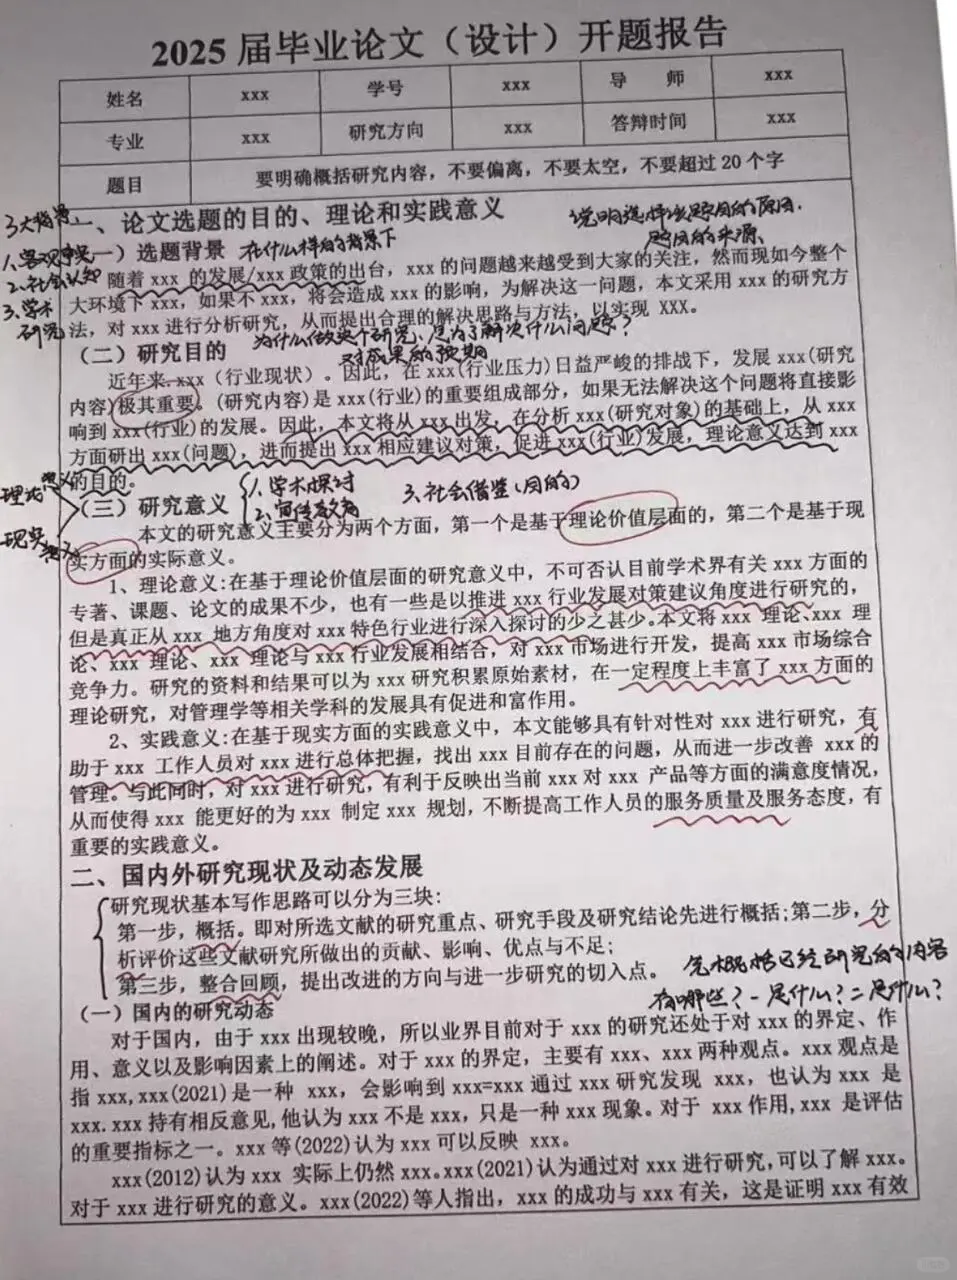 2025 届毕业论文（设计）开题报告
姓名 xxx 学号 xxx 导 师 xxx
专业 xxx 研究方向 xxx 答辩时间 xxx
题目 要明确概括研究内容，不要偏离，不要太空，不要超过 20 个字
3大背景 一、论文选题的目的、理论和实践意义 说明选择该题目的原因、
题目的来源、
1、客观事实 （一）选题背景 在什么样的背景下
2、社会认知 随着 xxx 的发展/xxx 政策的出台，xxx 的问题越来越受到大家的关注，然而现如今整个
3、学术 大环境下 xxx，如果不 xxx，将会造成 xxx 的影响，为解决这一问题，本文采用 xxx 的研究方
研究 法，对 xxx 进行分析研究，从而提出合理的解决思路与方法，以实现 XXX。
为什么做这个研究、是为了解决什么问题？
（二）研究目的 对成果的预期
近年来.xxx（行业现状）。因此，在 xxx(行业压力)日益严峻的排战下，发展 xxx(研究
内容)极其重要。(研究内容)是 xxx(行业)的重要组成部分，如果无法解决这个问题将直接影
响到 xxx(行业)的发展。因此，本文将从 xxx 出发，在分析 xxx(研究对象)的基础上，从 xxx
方面研出 xxx(问题)，进而提出 xxx 相应建议对策，促进 xxx(行业)发展，理论意义达到 xxx
的目的。
理论意义 （三）研究意义 1、学术探讨 3、社会借鉴（目的）
2、宣传教育
本文的研究意义主要分为两个方面，第一个是基于理论价值层面的，第二个是基于现
现实意义 实方面的实际意义。
1、理论意义:在基于理论价值层面的研究意义中，不可否认目前学术界有关 xxx 方面的
专著、课题、论文的成果不少，也有一些是以推进 xxx 行业发展对策建议角度进行研究的，
但是真正从 xxx 地方角度对 xxx 特色行业进行深入探讨的少之甚少。本文将 xxx 理论、xxx 理
论、xxx 理论、xxx 理论与 xxx 行业发展相结合，对 xxx 市场进行开发，提高 xxx 市场综合
竞争力。研究的资料和结果可以为 xxx 研究积累原始素材，在一定程度上丰富了 xxx 方面的
理论研究，对管理学等相关学科的发展具有促进和富作用。
2、实践意义:在基于现实方面的实践意义中，本文能够具有针对性对 xxx 进行研究，有
助于 xxx 工作人员对 xxx 进行总体把握，找出 xxx 目前存在的问题，从而进一步改善 xxx 的
管理。与此同时，对 xxx 进行研究，有利于反映出当前 xxx 对 xxx 产品等方面的满意度情况，
从而使得 xxx 能更好的为 xxx 制定 xxx 规划，不断提高工作人员的服务质量及服务态度，有
重要的实践意义。
二、国内外研究现状及动态发展
研究现状基本写作思路可以分为三块:
第一步，概括。即对所选文献的研究重点、研究手段及研究结论先进行概括;第二步，分
析评价这些文献研究所做出的贡献、影响、优点与不足;
第三步，整合回顾，提出改进的方向与进一步研究的切入点。
先概括已经研究的内容
有哪些？一是什么？二是什么？
（一）国内的研究动态
对于国内，由于 xxx 出现较晚，所以业界目前对于 xxx 的研究还处于对 xxx 的界定、作
用、意义以及影响因素上的阐述。对于 xxx 的界定，主要有 xxx、xxx 两种观点。xxx 观点是
指 xxx,xxx(2021)是一种 xxx，会影响到 xxx=xxx 通过 xxx 研究发现 xxx，也认为 xxx 是
xxx. xxx 持有相反意见,他认为 xxx 不是 xxx，只是一种 xxx 现象。对于 xxx 作用,xxx 是评估
的重要指标之一。xxx 等(2022)认为 xxx 可以反映 xxx。
xxx(2012)认为 xxx 实际上仍然 xxx。xxx(2021)认为通过对 xxx 进行研究,可以了解 xxx。
对于 xxx 进行研究的意义。xxx(2022)等人指出，xxx 的成功与 xxx 有关，这是证明 xxx 有效